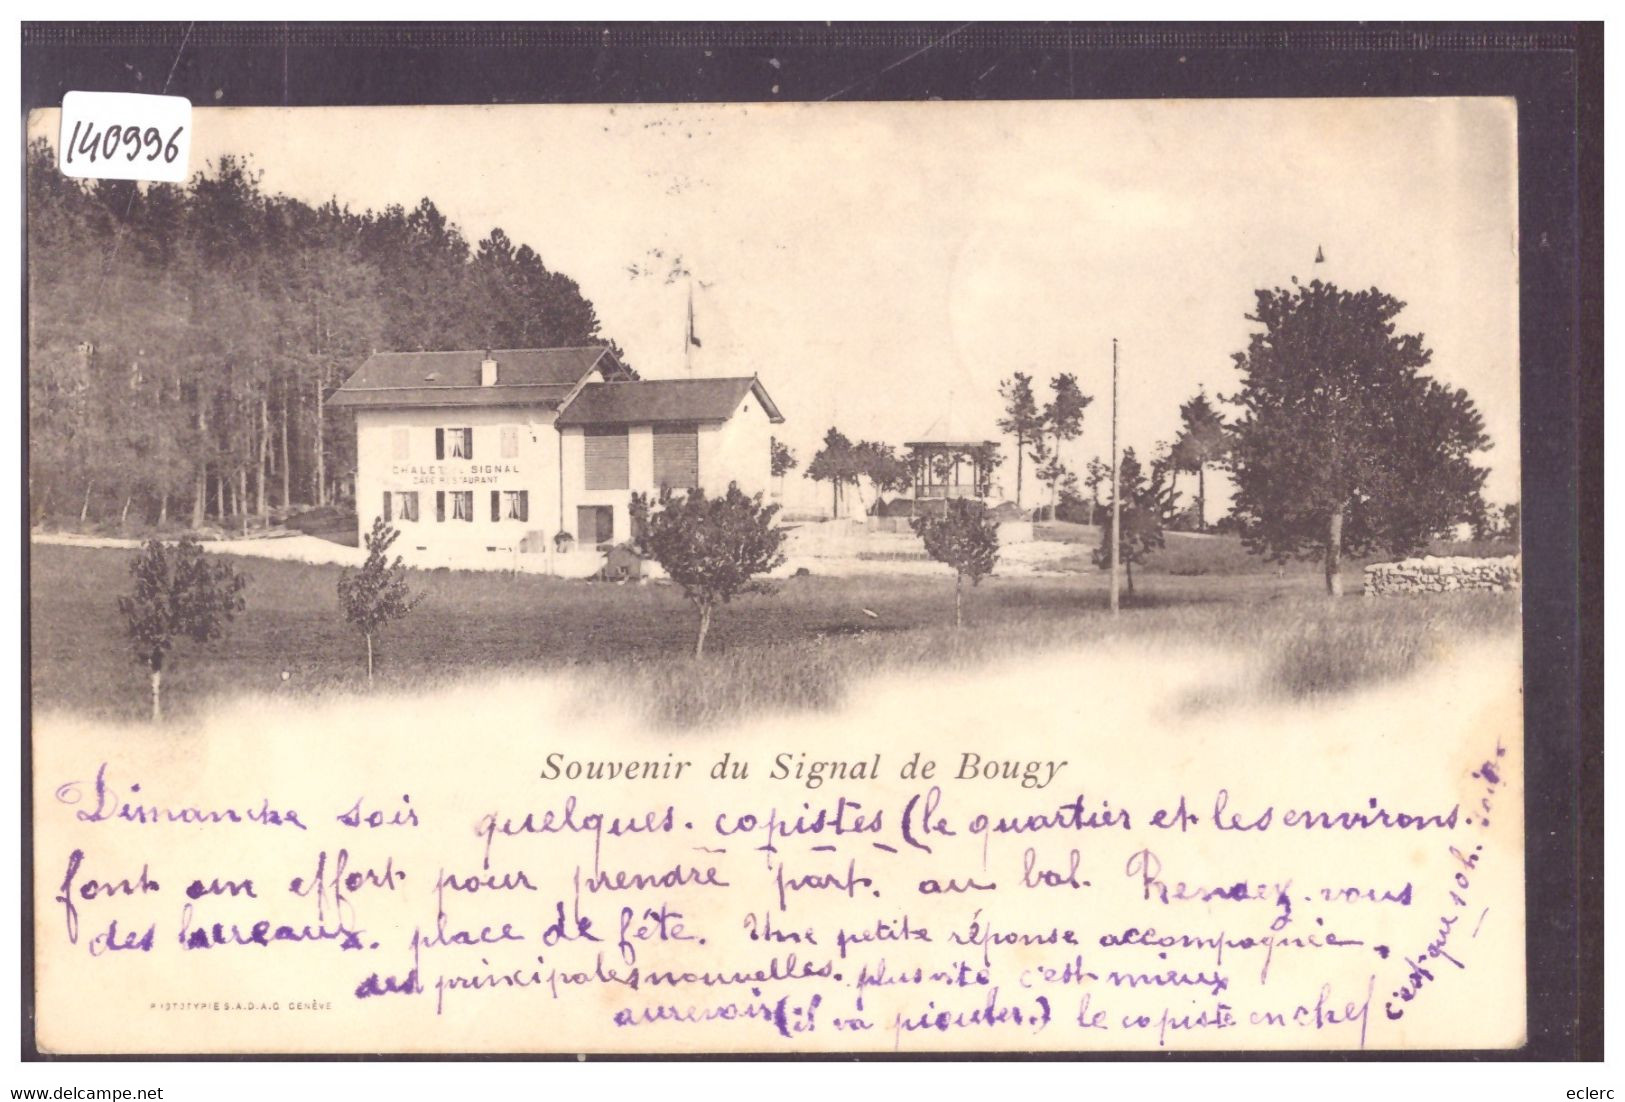 140996
CHALET DU SIGNAL
CAFÉ RESTAURANT
Souvenir du Signal de Bougy
Dimanche soir quelques copistes (le quartier et les environs.
font un effort pour prendre part. au bal. Rendez-vous
des bureaux. place de fête. Une petite réponse accompagnée
des principales nouvelles. plus vite c'est mieux
aurevoir (il va piouler.) le copiste en chef
c'est que 10h. soir
PHOTOTYPIE S.A.D.A.G. GENÈVE
www.delcampe.net
eclerc